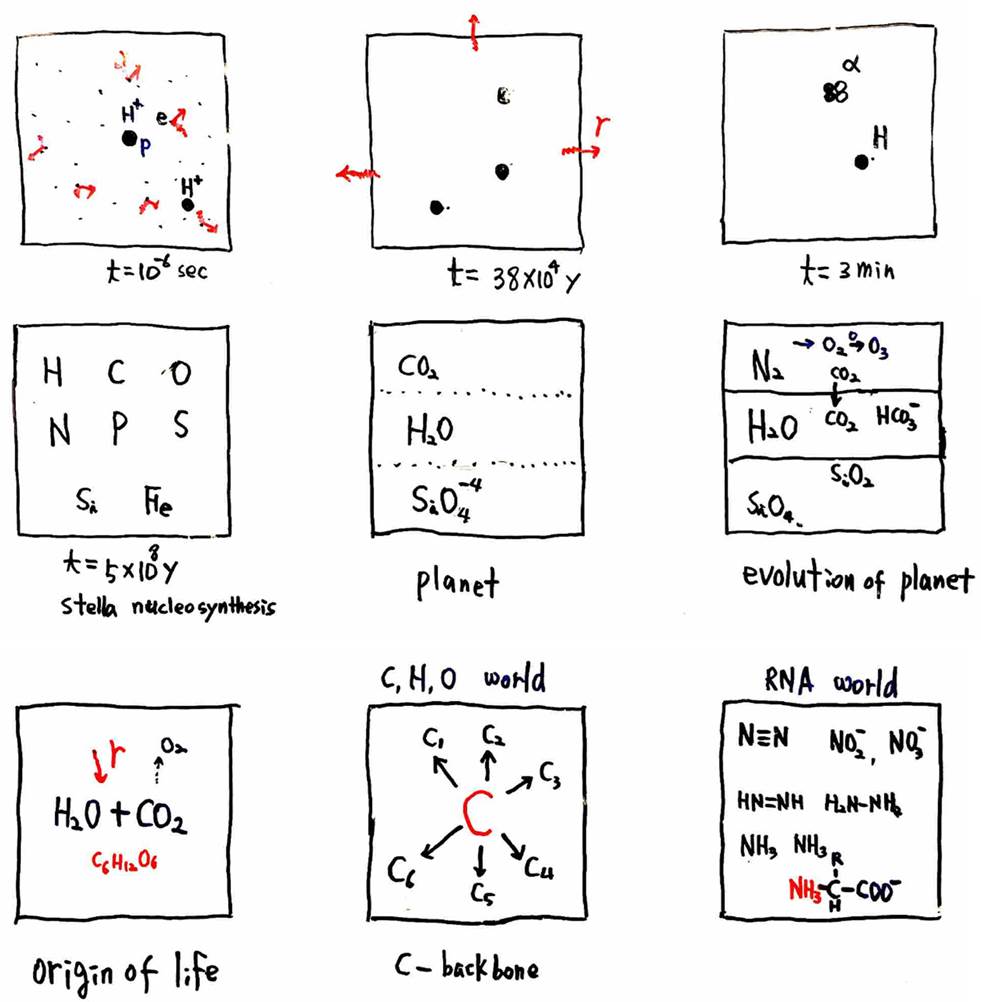 H⁺
e
p
H⁺
t=10⁻⁶ sec
r
t= 38×10⁴ y
α
H
t=3 min
H C O
N P S
Si Fe
t=5×10⁸y
Stella nucleosynthesis
CO₂
H₂O
SiO₄⁻⁴
planet
N₂ → O₂ →O O₃
CO₂
↓
H₂O CO₂ HCO₃⁻
SiO₂
SiO₄
evolution of planet
r O₂
H₂O + CO₂
C₆H₁₂O₆
origin of life
C, H, O world
C₁ C₂
C₃
C
C₆ C₄
C₅
C-backbone
RNA world
N≡N NO₂⁻, NO₃⁻
HN=NH H₂N-NH₂
NH₃ NH₃
R
NH₃-C-COO⁻
H